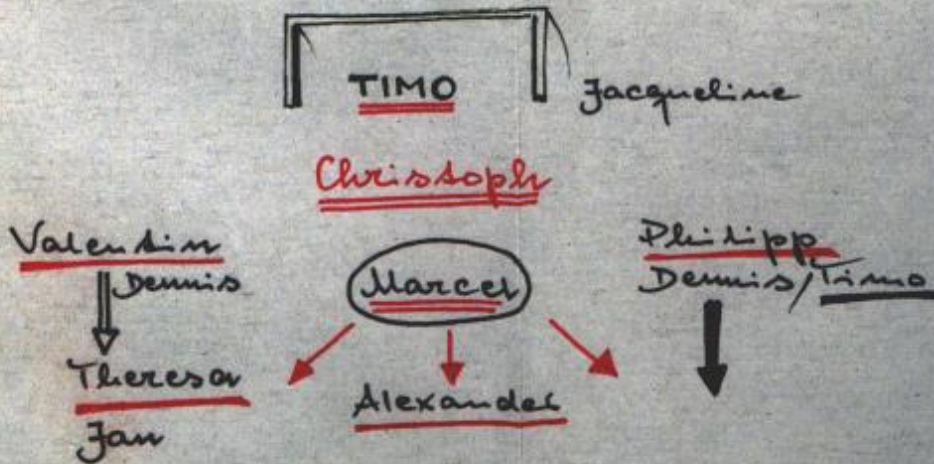 TIMO
Jacqueline
Christoph
Valentin
Dennis
Marcel
Philipp
Dennis/Timo
Theresa
Jan
Alexander